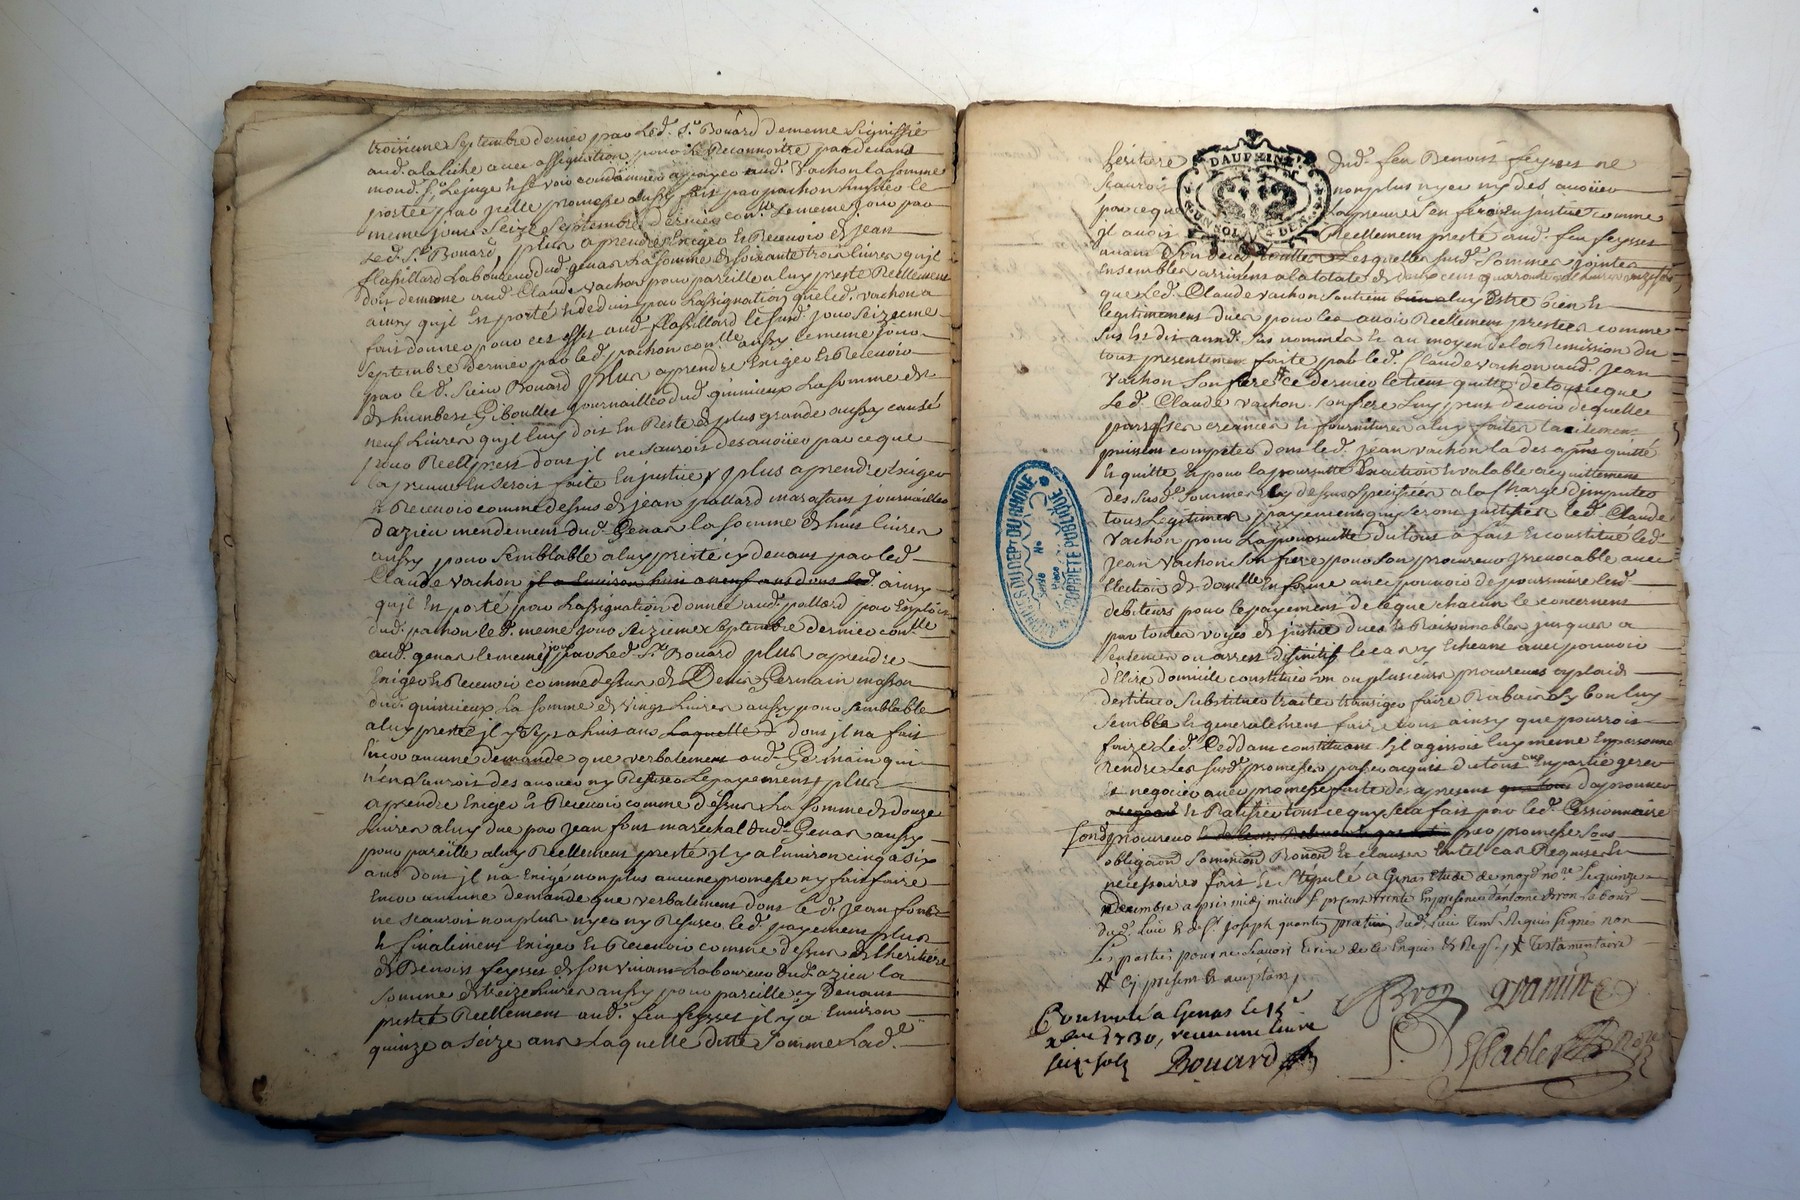 troisieme Septembre dernier par led. Sr. Bouard dememe Signiffié
aud. alaliche avec assignation pour Le Reconnoitre pardevant
mond. Sr. Lejuge & se voir condamner apayer aud. Vachon la somme
portée par jcelle promesse aussy fait par pachon huissier le
meme jour Seize Septembre dernier con.lle Lememe Jour par
Led. Sr. Bouard, plus aprendre Exiger & Recevoir de jean
flassillard Laboureur dud. genas La somme de soixante trois livres qu'jl
doit dememe aud. Claude vachon pour pareille aluy presté Reellement
ainsy qu'jl Est porté & deduit par Lassignation que led. vachon a
fait donner pour ces effet aud. flassillard le susd. jour seizieme
Septembre dernier par led. pachon con.lle aussy le meme jour
par le d. Sieur Bouard plus aprendre Exiger & Recevoir
de humbert Giboulles journaillier dud. quimieux La somme de
neuf Livres qu'jl luy doit En Reste de plus grande aussy causé
pour Reell prest dont jl ne sauroit desavouer parce que
la preuve En seroit faite En justice plus aprendre Exiger
& Recevoir comme dessus de jean pallard journaillier
dazieu mendement dud. Genas la somme de huit livres
aussy pour semblable aluy presté cy devant par led.
Claude vachon jl a Environ huit a neuf ans dont led. ainsy
qu'jl Est porté par Lassignation donnée aud. pallard par Exploit
dud. pachon le d. meme jour Seizieme Septembre dernier con.lle
aud. genas lememe jour par Led. Sr. Bouard plus aprendre
Exiger & Recevoir comme dessus de Denis Germain masson
dud. quimieux La somme de Vingt Livres aussy pour semblable
aluy presté jl y a sept a huit ans Laquelle d dont jl na fait
Encor aucune demande que verbalement aud. Germain qui
n'en Sauroit desavouer ny Refuser Le payement plus
aprendre Exiger & Recevoir comme dessus La somme de douze
Livres aluy due par Jean font marechal dud. Genas aussy
pour pareille aluy Reellement presté jl y a Environ cinq a Six
ans dont jl na Exigé non plus aucune promesse ny fait faire
Encor aucune demande que verbalement dont le d. Jean font
ne Scauroit non plus nyer ny Refuser le d. payement plus
& finalement Exiger & Recevoir comme dessus de lheritiere
de Benoist feysses de son vivant Laboureur dud. azieu la
somme de treize Livres aussy pour pareille cy devant
presté Reellement aud. feu feysses jl y a Environ
quinze a Seize ans Laquelle ditte Somme Lad.e
heritiere dud. feu Benoist feysses ne
Scauroit non plus nyer ny des avouer
parce que La preuve s'en feroit En justice comme
jl avoit Reellement presté aud. feu feysses
DAUPHINÉ
UN SOL 4 DEN.
Lesquelles susd. Sommes jointes
Ensembles arrivent a la totale de deux cent quarante
que Led. Claude vachon soutient bien aluy Estre bien &
legitimement dues pour les avoir Reellement prestées comme
sus Est dit aux sus nommés & au moyen de la Remission du
tout presentement faite par led. Claude vachon aud. Jean
Vachon Son frere # ce dernier le tient quitte de tout ce que
Led. Claude vachon son frere Luy peut devoir de quelles
parts ses creances & fournitures aluy faites tacitement
puissent compéter dont led. jean vachon la des apnt quitté
& quitte, & pour la poursuitte Exaction & valable acquittement
des susd. sommes cy dessus specifiées a la charge djmputer
tous Legitimes payements quy seront justifiés led. Claude
Vachon pour La poursuitte du tout a fait & constitué led.
jean Vachon Son frere pour son procureur jrrevocable avec
Election de dom.lle En forme avec pouvoir de poursuivre lesd.
debiteurs pour le payement de ce que chacun le concernent
par toutes voyes de justice dues & Raisonnables jusques a
sentence ou arrest definitif le cas y Echeant avec pouvoir
d'Elire domicile constituer un ou plusieurs procureurs a plaid
destituer substituer traiter transiger faire Rabais sy bon luy
semble & generalement faire tout ainsy que pourroit
faire Led. Ceddant constituant s'jl agissoit luy meme En personne
rendre Les susd. promesses pour acquis du tout ou En partie gerer
& negocier avec promesse faite des a present dapprouver
& Ratifier tout ce quy sera fait par led. Cessionnaire
sond. procureur par promesse sous
obligaon Soumissions Renon. & clauses En tel cas Requises &
necessaires fait & Stipulé a Genas Etude de moyd no.re Le quinze
Decembre apres midy mil sept cent trente En presence d'antoine Bron Labour
dud. Lieu & de Sr. Joseph quantin praticien dud. Lieu tem. Requis signés non
Les parties pour ne scavoir Ecrire de ce Enquis & Reqs. # testamentaire
# cy present & acceptant,
Bron quantin
Controllé a Genas le 15e
xbre 1730, receu une livre
seize sols Bouard
ARCHIVES DU DEPT DU RHONE
PROPRIETE PUBLIQUE
Serie No
Piece